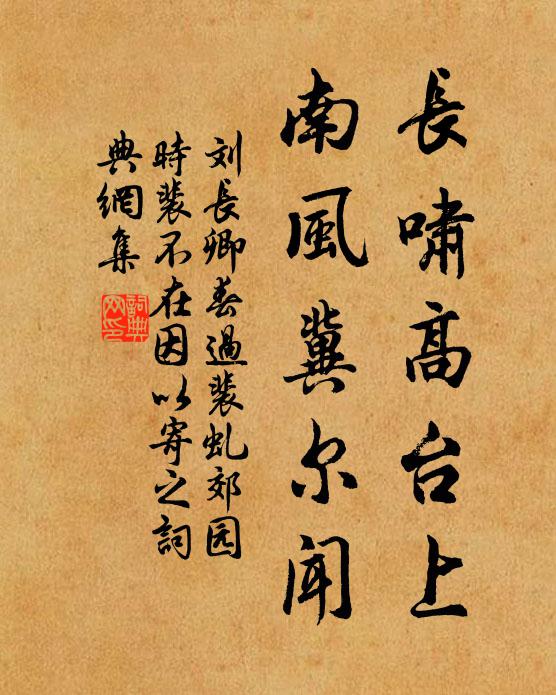 長嘯高台上
南風冀尔聞
刘長卿春過裴虬郊园
時裴不在因以寄之詞
典網集
詞典网印